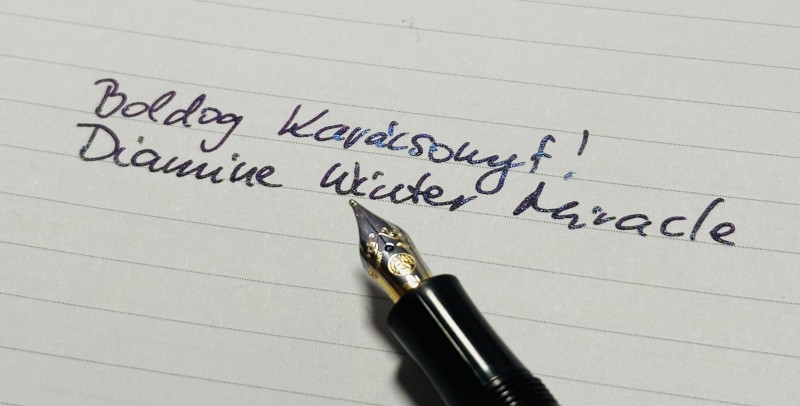 Boldog Karácsonyt!
Diamine Winter Miracle